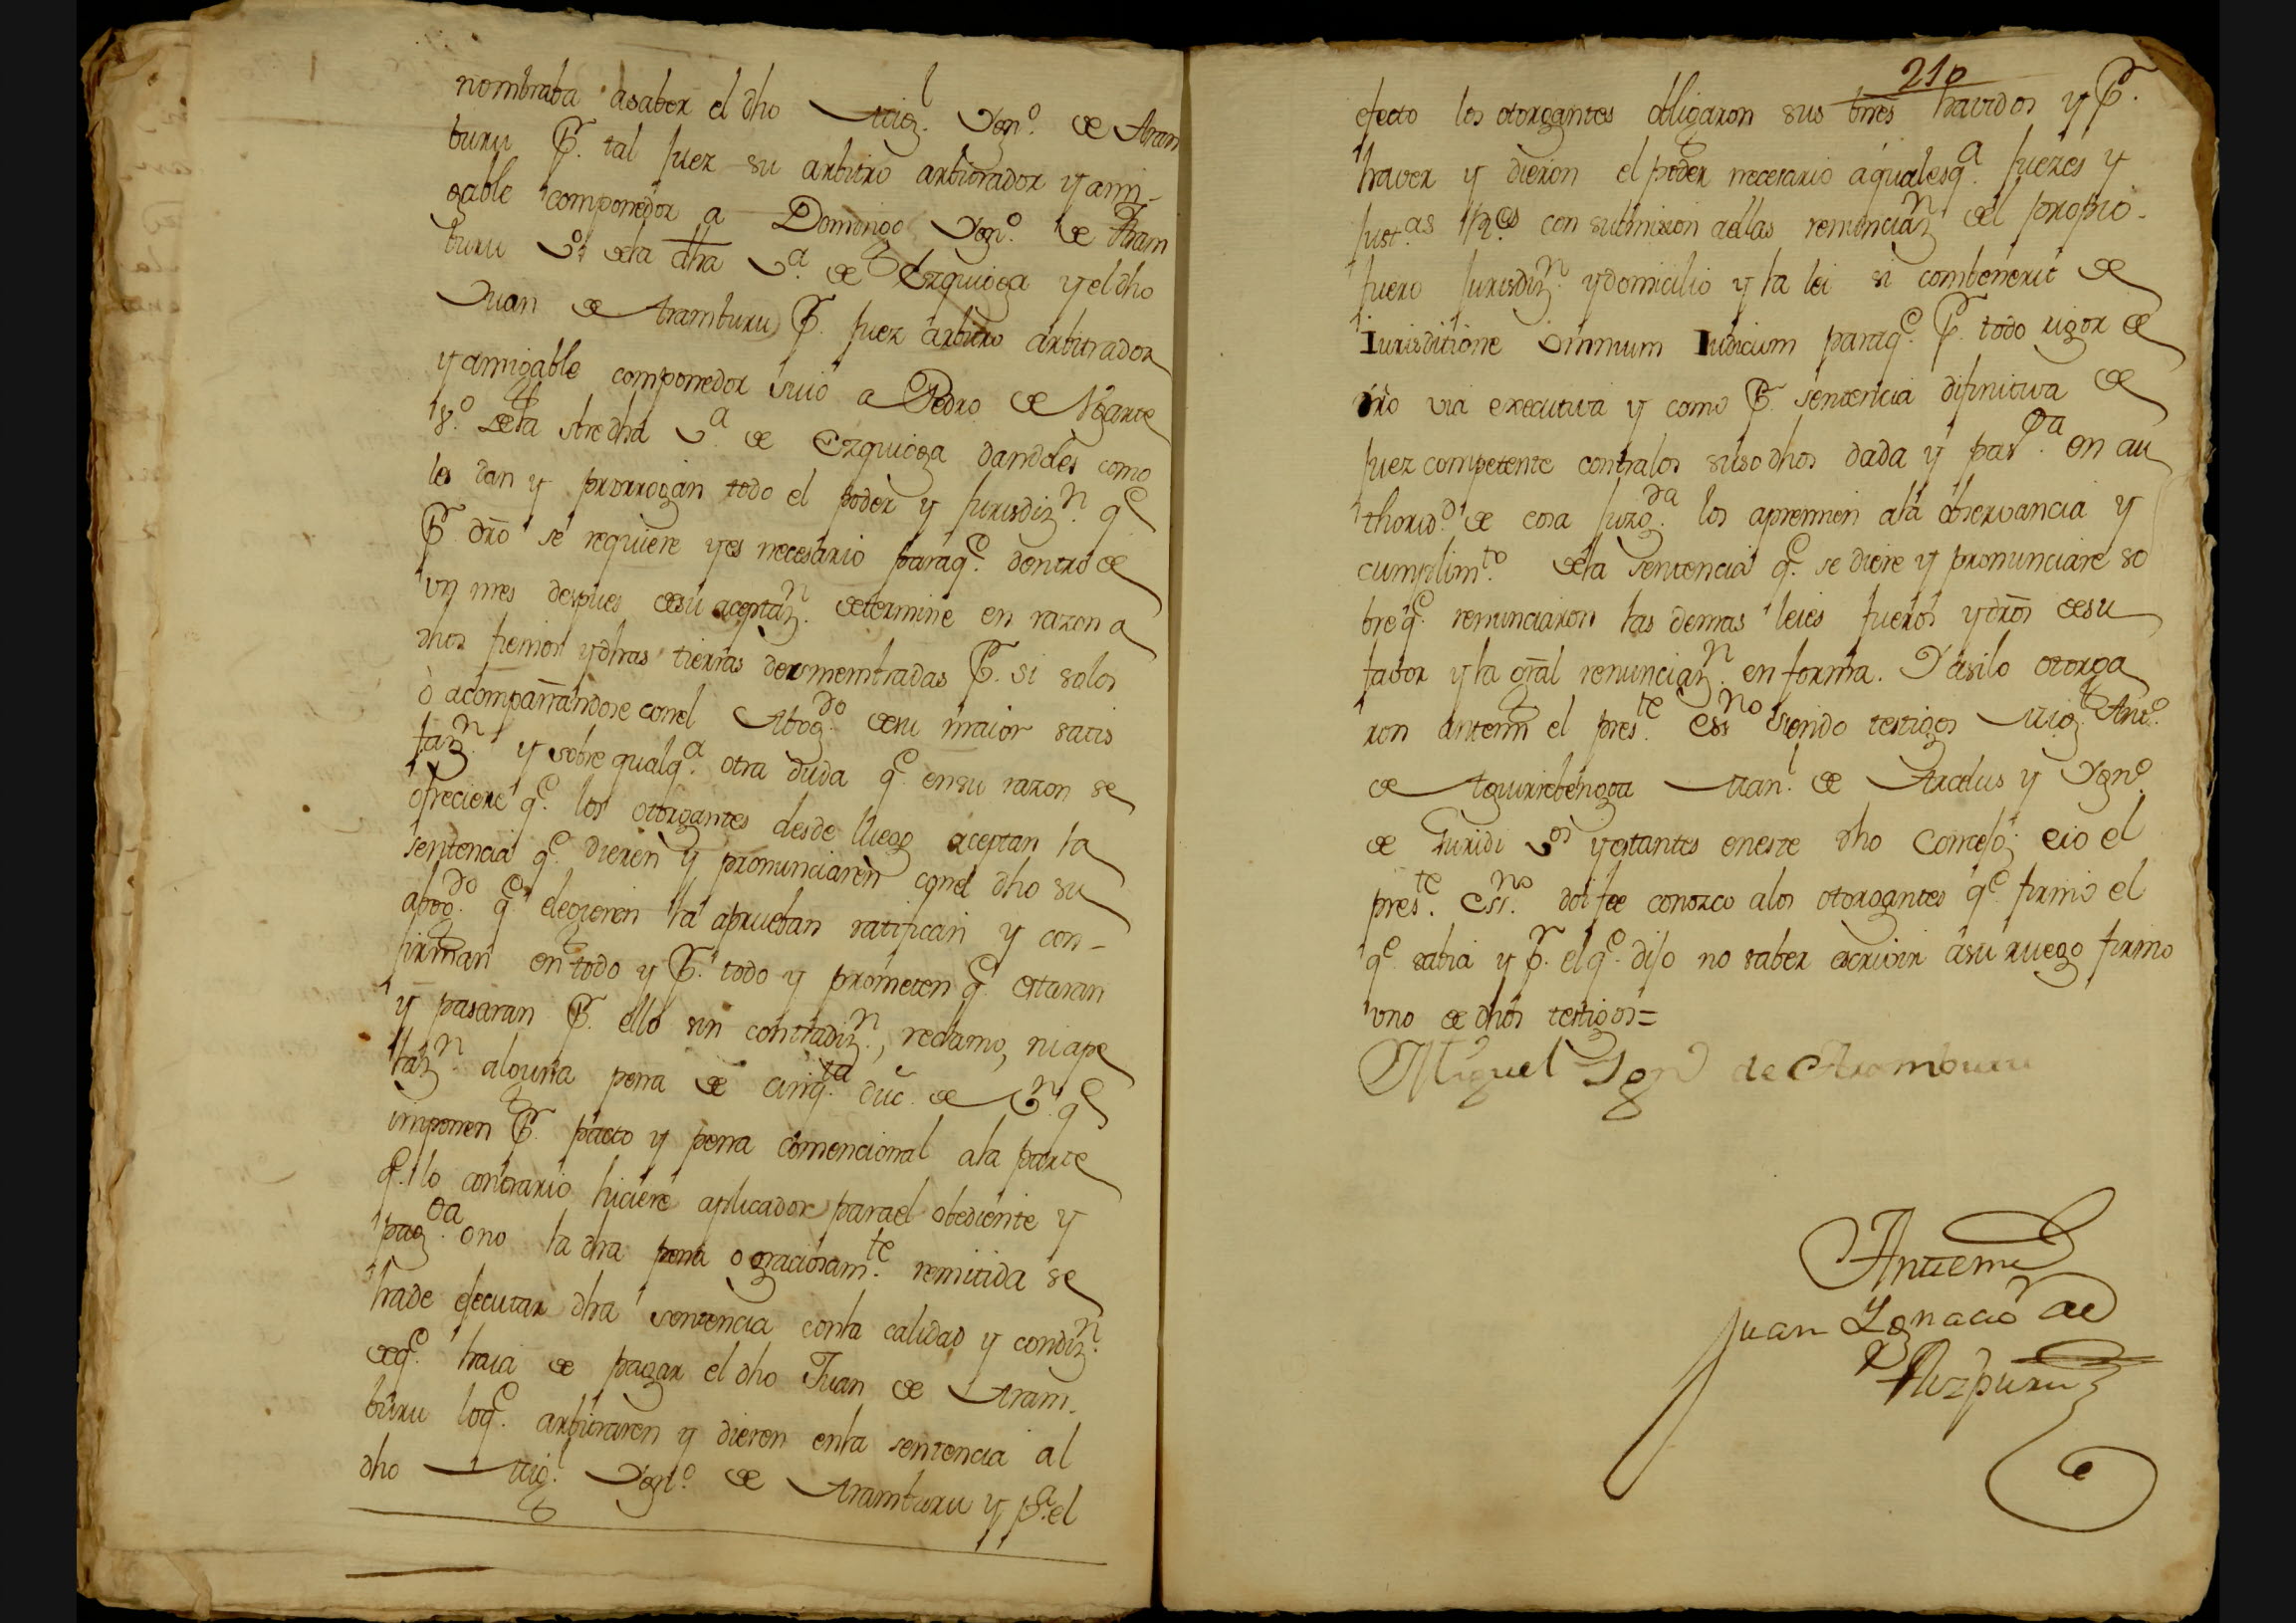 nombraba asaber el dho Mig.l Ygn.o de Aram
buru Pr. tal Juez su arbitro arbitrador y ami-
gable componedor a Domingo Ygn.o de Aram
buru v.o dela dha v.a de Ezquioga y el dho
Juan de Aramburu Pr. Juez arbitro arbitrador
y amigable componedor suio a Pedro de Ugarte
v.o dela sbredha v.a de Ezquioga dandoles como
les dan y prorrogan todo el poder y Jurisdiz.n q.e
Pr. dro se requiere y es necesario paraq.e dentro de
un mes despues desu aceptaz.n determine en razon a
dhos frenios ydhas tierras deromembradas Pr. si solos
ò acompañandose conel Abog.do desu maior satis
faz.n y sobre qualq.a otra duda q.e ensu razon se
ofreciere q.e los otorgantes desde lluego aceptan la
sentencia q.e dieren y pronunciaren conel dho su
abog.do q.e eleg­ieren la aprueban ratifican y con-
firman en todo y Pr. todo y prometen q.e estaran
y pasaran Pr. ello sin contradiz.n, reclamo, ni ape
laz.n alguna pena de cinq.ta duc. de v.n q.e
imponen Pr. pacto y pena comencional ala parte
q.e lo contrario hiciere aplicados parael obediente y
pag.da ono la dha pena o graciosam.te remitida se
hade ejecutar dha sentencia conla calidad y condiz.n
deq.e haia de pagar el dho Juan de Aram-
buru loq.e arbitraren y dieren enla sentencia al
dho Mig.l Ygn.o de Aramburu y pa. el
210
efecto los otorgantes obligaron sus bnes havidos y Pr.
haver y dieron el poder necesario aqualesq.a Juezes y
Just.as R.es con submision aellas renunciaz.n del propio
fuero Jurisdiz.n ydomicilio y la lei si combenerit de
Iurisditione omnium Iudicum paraq.e Pr. todo rigor de
dro via executiva y como Pr. sentencia difinitiva de
Juez competente contralos susodhos dada y pas.da en au
thorid.d de cosa Juzg.da los apremien ala observancia y
cumplim.to dela sentencia q.e se diere y pronunciare so
breq.e renunciaron las demas leies fueros ydros desu
favor yla gral renunciaz.n en forma. Y asilo otorga
ron antemi el pres.te Ess.no siendo testigos Mig.l Ant.o
de Aguirrebengoa Man.l de Aracelus y Ygn.o
de Guridi v.os yestantes eneste dho Concejo; eio el
pres.te Ess.no doi fee conozco alos otorgantes q.e firmo el
q.e sabia y pr. elq.e dijo no saber escrivir asu ruego firmo
uno de dhos testigos=
Miguel Ygn.o de Aramburu
Antemi
Juan Ygnacio de
Aizpuru